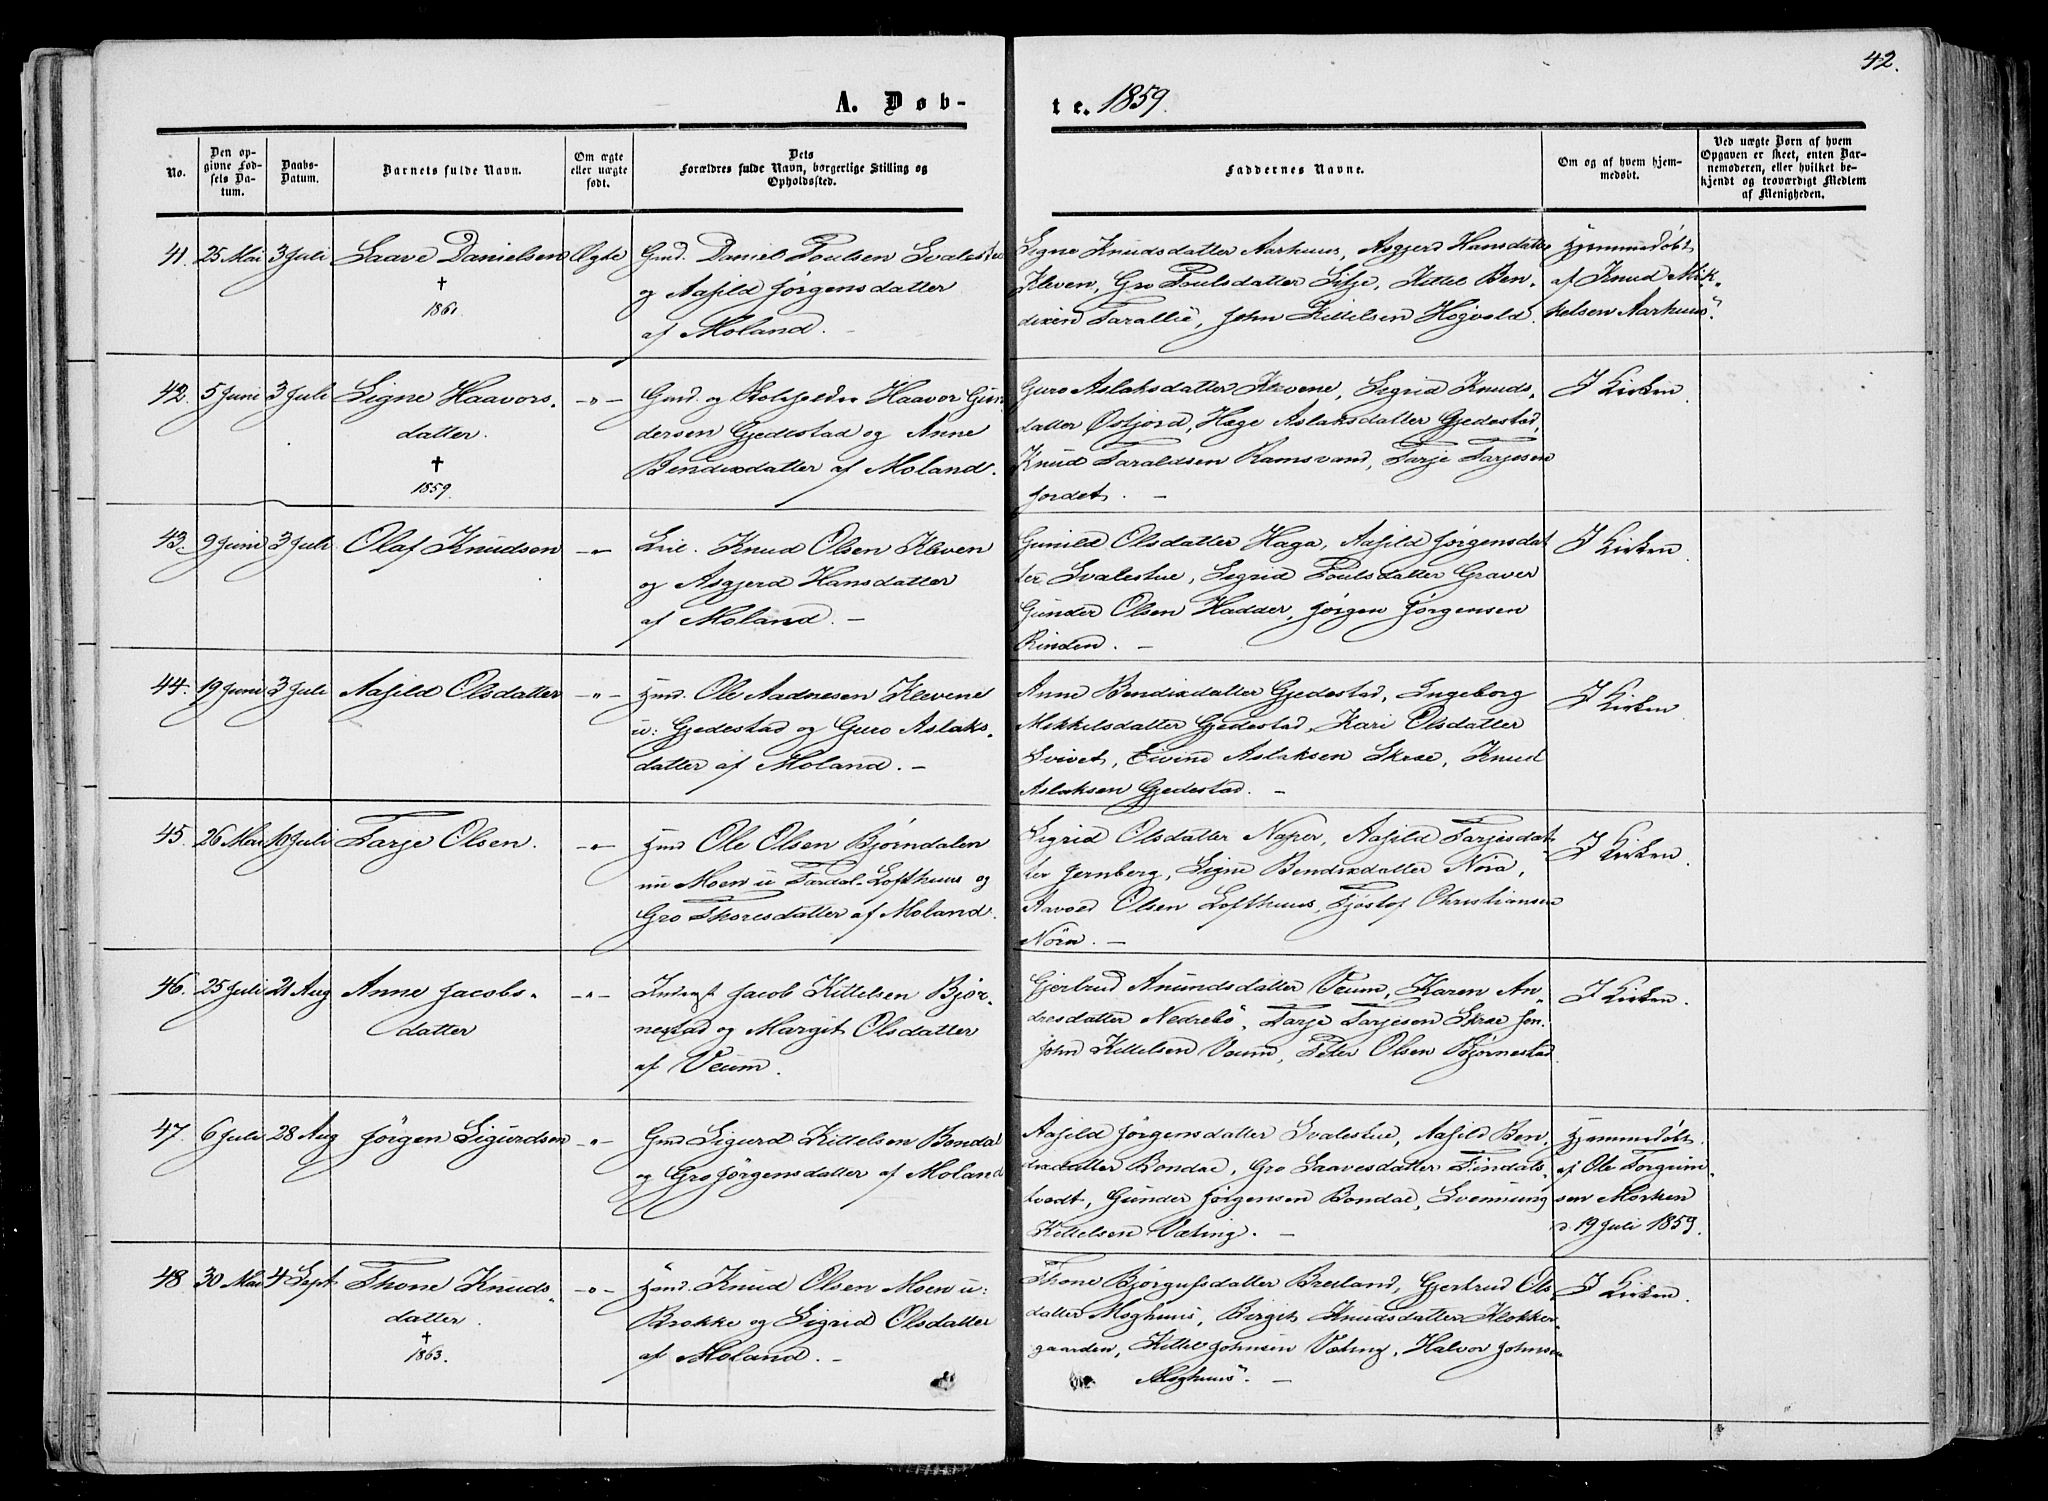 42.
A. Døb-
te. 1859.
No.
Den op-
givne Fød-
sels Da-
tum.
Daabs-
Datum.
Barnets fulde Navn.
Om ægte
eller uægte
født.
Dets
Forældres fulde Navn, borgerlige Stilling og
Opholdssted.
Faddernes Navne.
Om og af hvem hjem-
medøbt.
Ved uægte Børn af hvem
Opgaven er skeet, enten Bar-
nemoderen, eller hvilket be-
kjendt og troværdigt Medlem
af Menigheden.
41. 25 Mai 3 Juli Saave Danielsen Ægte
†
1861
Gmd. Daniel Poulsen Svalestue
og Aasild Jørgensdatter
af Moland. —
Signe Knudsdatter Aarhuus, Asgjerd Hansdatter
Kleven, Gro Poulsdatter Sitje, Kittel Ben-
dixen Farallie, John Kittelsen Hogvold.
Hjemmedøbt
af Knud Mik-
kelsen Aarhuus.
42. 5 Juni 3 Juli Signe Haavors-
datter.
†
1859.
Gmd. og Haavor Gun-
dersen Gjedestad og Anne
Bendixdatter af Moland.
Guro Aslaksdatter Klevene, Sigrid Knuds-
datter Østjord, Hæge Aslaksdatter Gjedestad,
Knud Taraldsen Ramsvand, Tarje Tarjesen
Jordet. —
I Kirken.
43. 9 Juni 3 Juli Olaf Knudsen
Knud Olsen Kleven
og Asgjerd Hansdatter
af Moland. —
Gunild Olsdatter Haga, Aasild Jørgensdat
ter Svalestue, Sigrid Poulsdatter Graver
Gunder Olsen Hadder, Jørgen Jørgensen
Rinden. —
I Kirken.
44. 19 Juni 3 Juli Aasild Olsdatter
Hmd. Ole Aadnesen Klevene
u: Gjedestad og Guro Aslaks-
datter af Moland. —
Anne Bendixdatter Gjedestad, Ingeborg
Mikkelsdatter Gjedestad, Kari Olsdatter
Svivet, Eivind Aslaksen Skræ, Knud
Aslaksen Gjedestad. —
I Kirken.
45. 26 Mai 10 Juli Tarje Olsen.
Hmd Ole Olsen Bjørndalen
nu Moen u Tardal-Lofthuus og
Gro Skoresdatter af Moland.
Sigrid Olsdatter Naper, Aasild Tarjesdat-
ter Jernberg, Signe Bendixdatter Nöra,
Aavoed Olsen Lofthuus, Tjöstof Christiansen
Nöra. —
I Kirken.
46. 25 Juli 21 Aug Anne Jacobs-
datter
Jacob Kittelsen Bjør-
nestad og Margit Olsdatter
af Veum.
Gjertrud Anundsdatter Veum, Karen An-
dresdatter Nedrebö, Tarje Tarjesen Skræ jun.
John Kittelsen Veum, Peter Olsen Bjørnestad
I Kirken.
47. 6 Juli 28 Aug Jörgen Sigurdsen
Gmd Sigurd Kittelsen Bondal
og Gro Jørgensdatter af Moland
Aasild Jørgensdatter Svalestue, Aasild Ben-
dixdatter Bondal, Gro Saavesdatter Findals-
tvedt, Gunder Jørgensen Bondal, Svennung
Kittelsen Væting. —
Hjemmedøbt
af Ole Torgrim-
sen Morken
d. 19 Juli 1859.
48. 30 Mai 4 Sept Thone Knuds-
datter.
†
1863.
Hmd. Knud Olsen Moen u:
Brokke og Sigrid Olsdatter
af Moland. —
Thone Bjørgufsdatter Breiland, Gjertrud Ols-
datter Moghuus, Birgit Knudsdatter Klokker-
gaarden, Kittel Johnsen Væting, Halvor Johnsen
Moghuus. —
I Kirken.